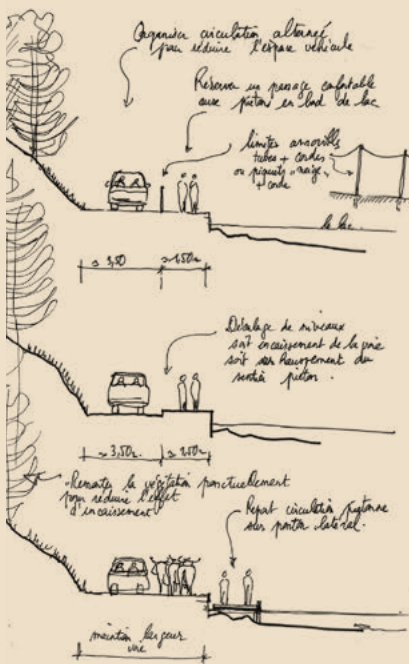 Organiser circulation alternée
pour réduire l'espace véhicule
Réserver un passage confortable
aux piétons en bord de lac
limites amovibles
tubes + cordes
ou piquets "neige"
+ corde
le lac
≈ 3,50
≈ 1,50m
Décalage de niveaux
soit encaissement de la voie
soit surhaussement du
sentier piéton.
≈ 3,50m
≈ 1,50m
- Remonter la végétation ponctuellement
pour réduire l'effet
d'encaissement
Report circulation piétonne
sur ponton latéral.
maintien largeur
voie